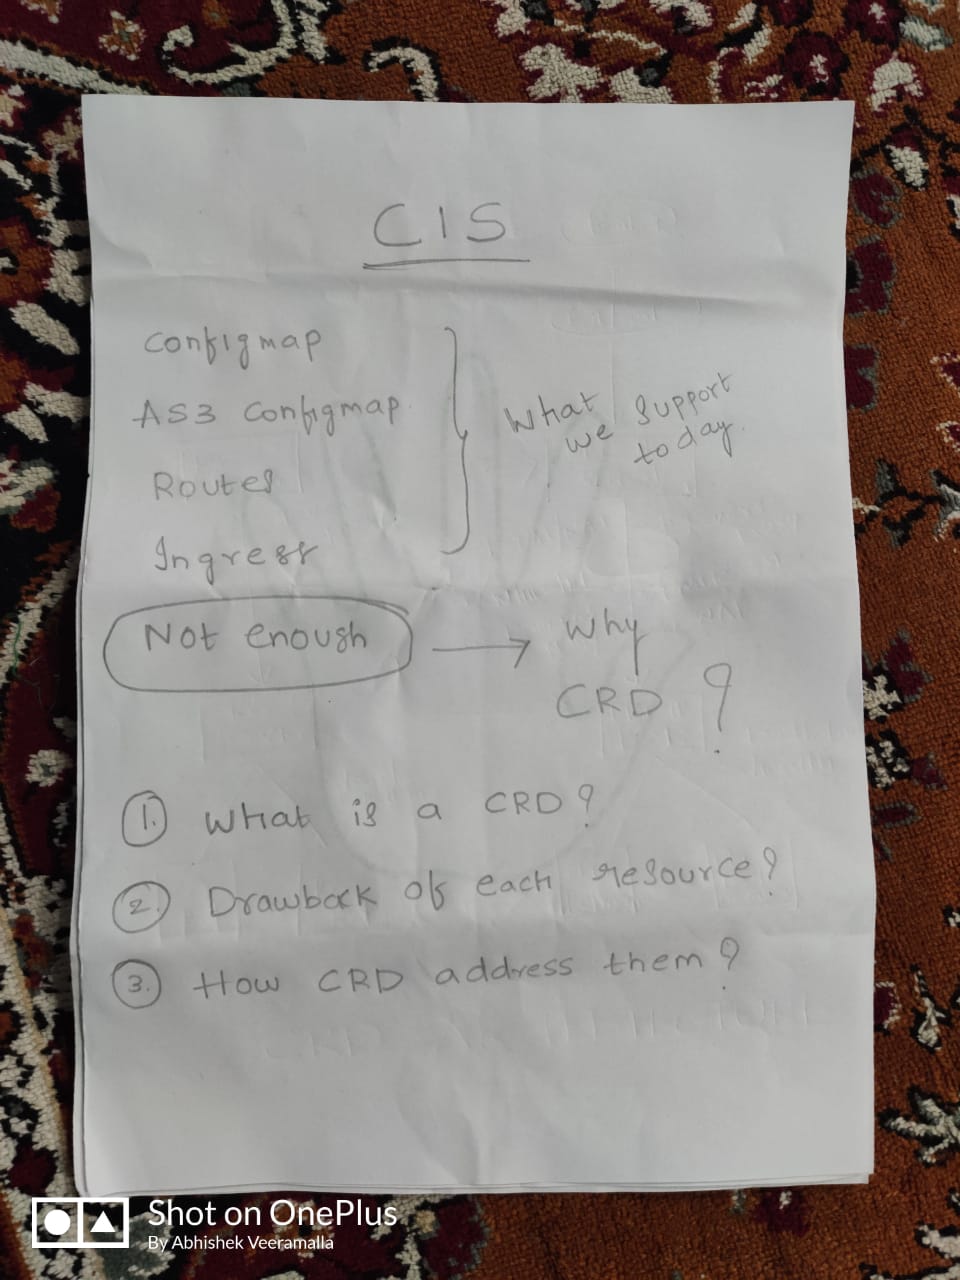 CIS
Configmap
AS3 Configmap
Routes
Ingress
What we support today.
Not enough → Why CRD ?
1. What is a CRD?
2. Drawback of each resource?
3. How CRD address them?
Shot on OnePlus
By Abhishek Veeramalla